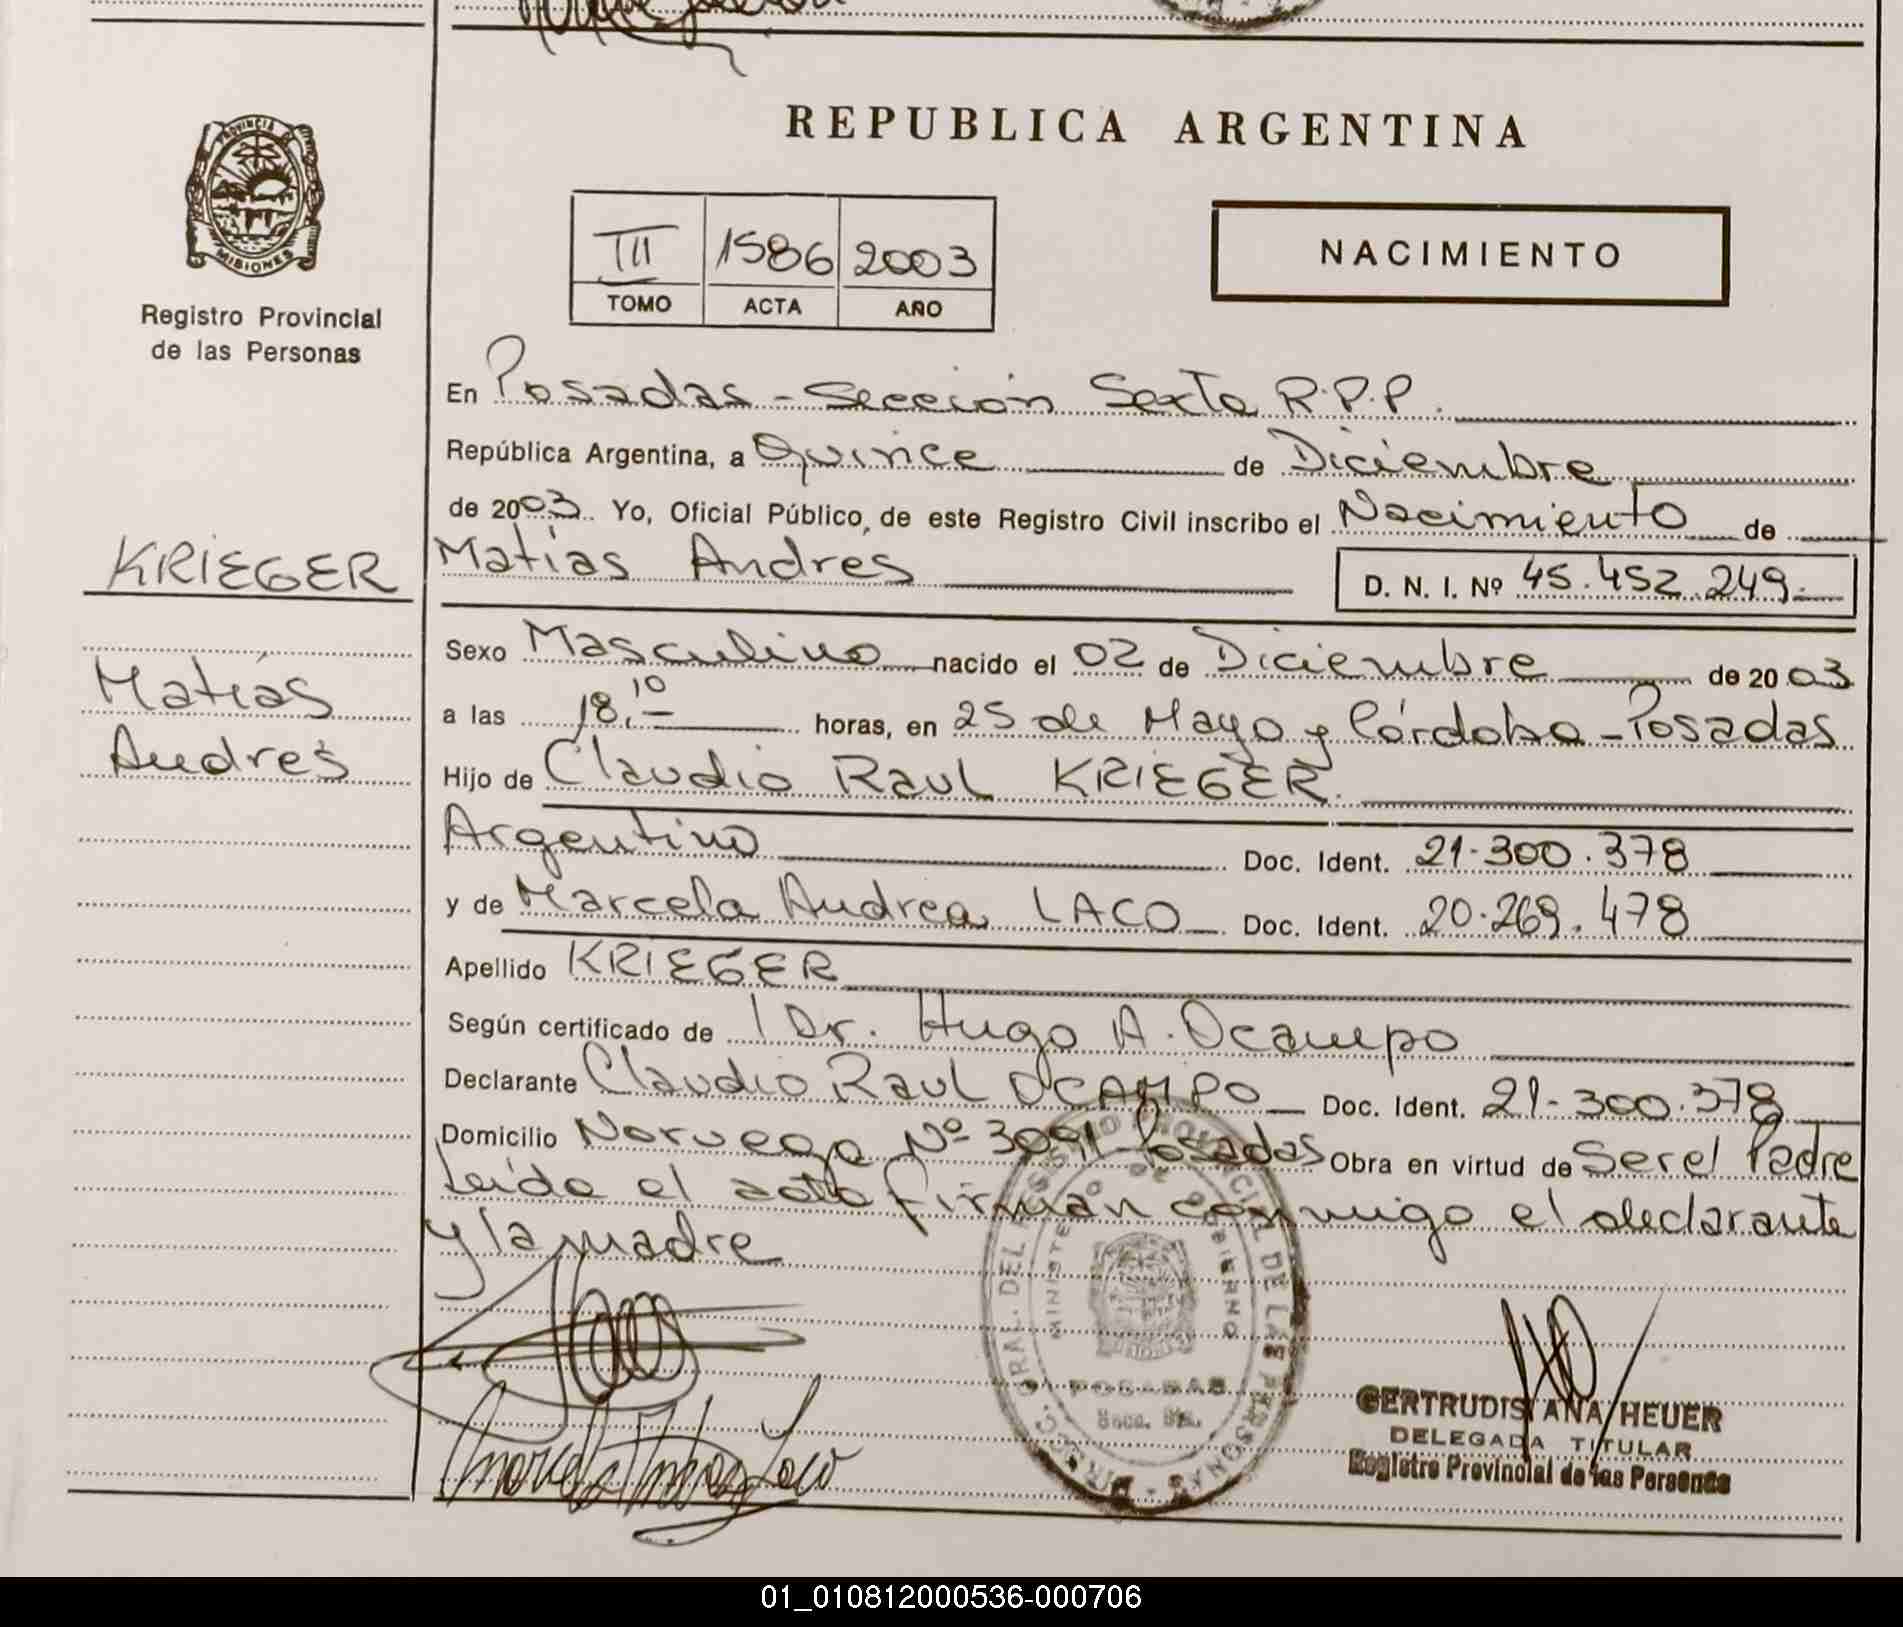 PROVINCIA
MISIONES
Registro Provincial
de las Personas
REPUBLICA ARGENTINA
III 1586 2003
TOMO ACTA AÑO
NACIMIENTO
En Posadas - Sección Sexta R.P.P.
República Argentina, a Quince de Diciembre
de 2003. Yo, Oficial Público, de este Registro Civil inscribo el Nacimiento de
KRIEGER
Matías Andrés D. N. I. Nº 45.452.249.-
Matías
Andrés
Sexo Masculino nacido el 02 de Diciembre de 2003
a las 18,10 horas, en 25 de Mayo y Córdoba - Posadas
Hijo de Claudio Raul KRIEGER.
Argentino Doc. Ident. 21.300.378
y de Marcela Andrea LACO Doc. Ident. 20.269.478
Apellido KRIEGER
Según certificado de l Dr. Hugo A. Ocampo
Declarante Claudio Raul OCAMPO Doc. Ident. 21.300.378
Domicilio Noruega Nº 3091 Posadas Obra en virtud de Ser el Padre
Leída el acta firman conmigo el declarante
y la madre
POSADAS
Secc. 6ta.
Marcela Andrea Laco
GERTRUDIS ANA HEUER
DELEGADA TITULAR
Registro Provincial de las Personas
01_010812000536-000706